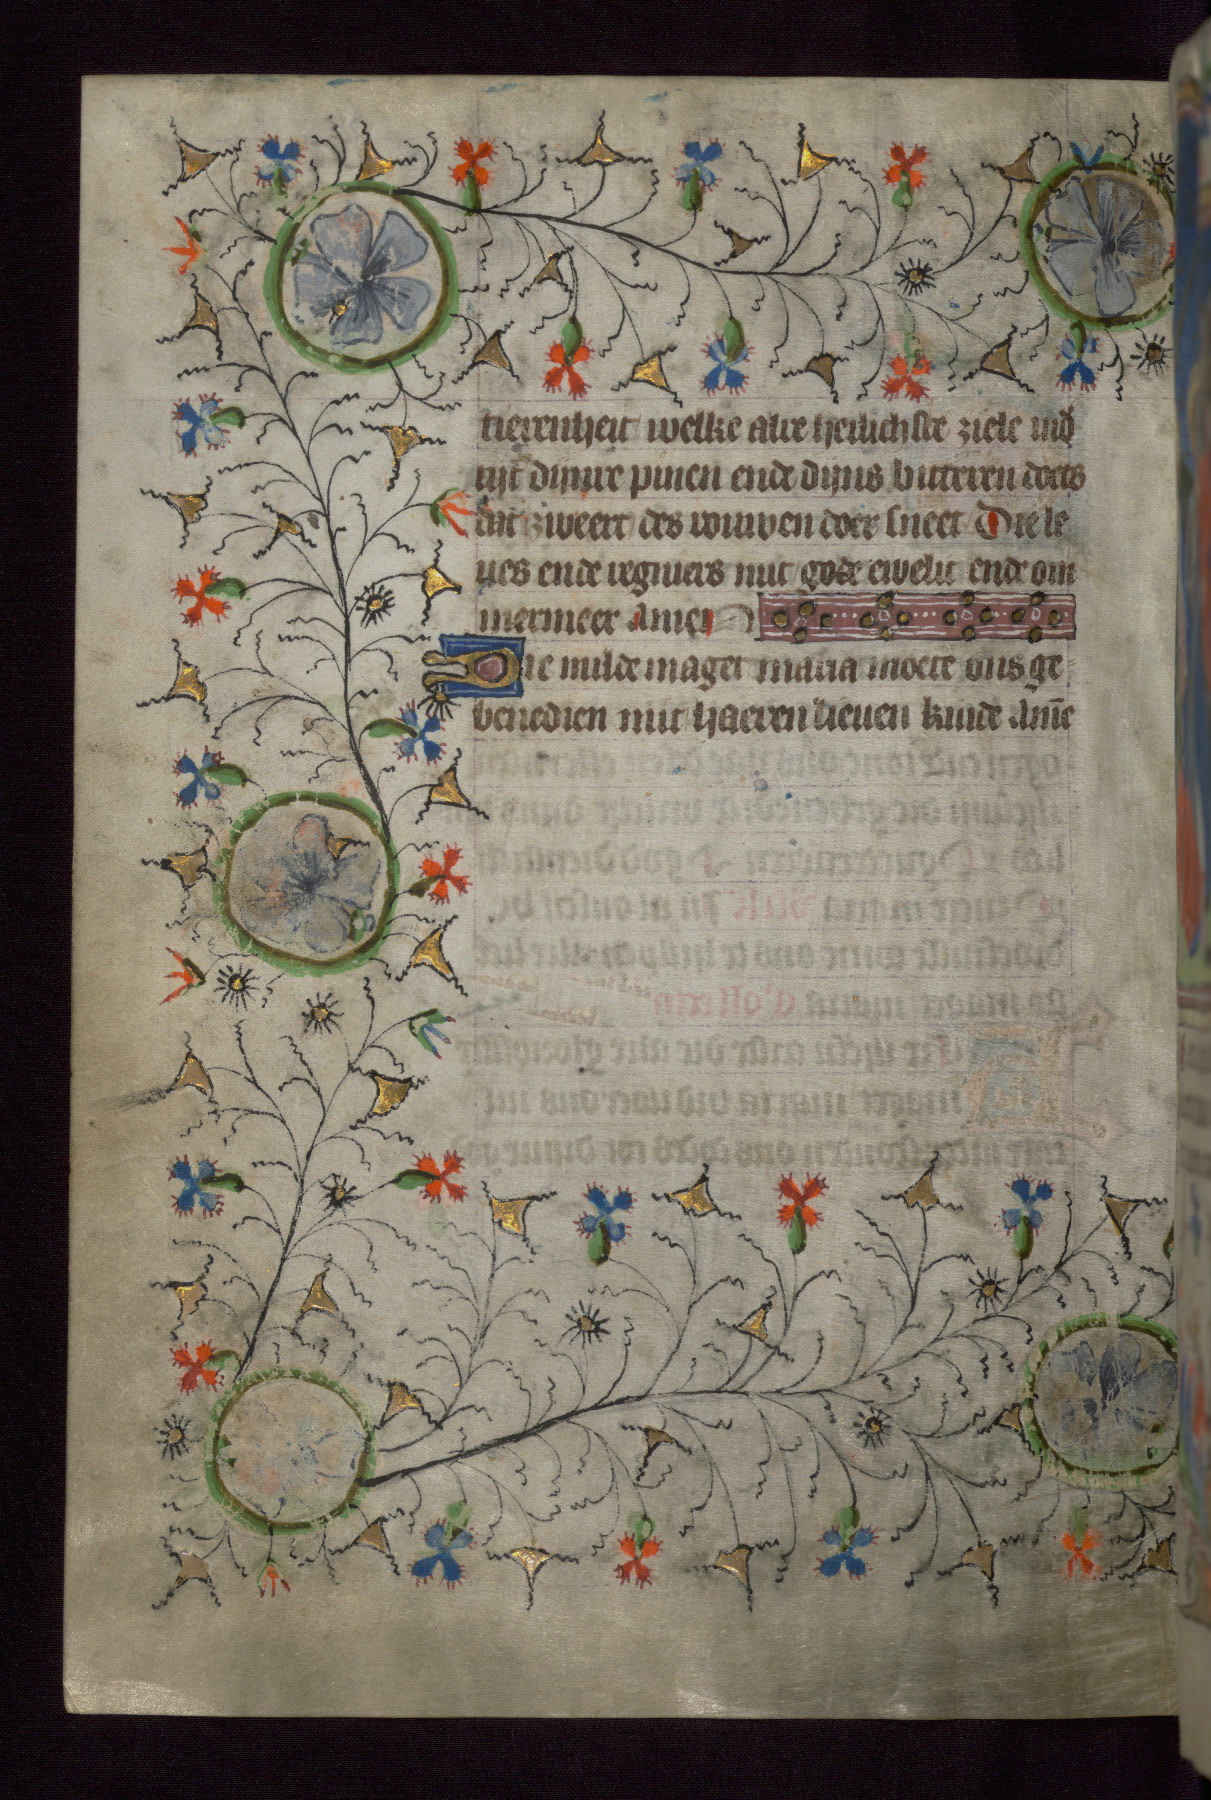 tierenheit welke alre heilichste ziele ind̄
tijt dijnre pinen ende dijns bitteren doets
dat zweert des rouwen doer sneet Die le
ues ende regniers mit gode ewelic ende om
mermeer Amen
Die milde maget maria moete ons ge
benedien mit haeren lieuen kinde Am̄e